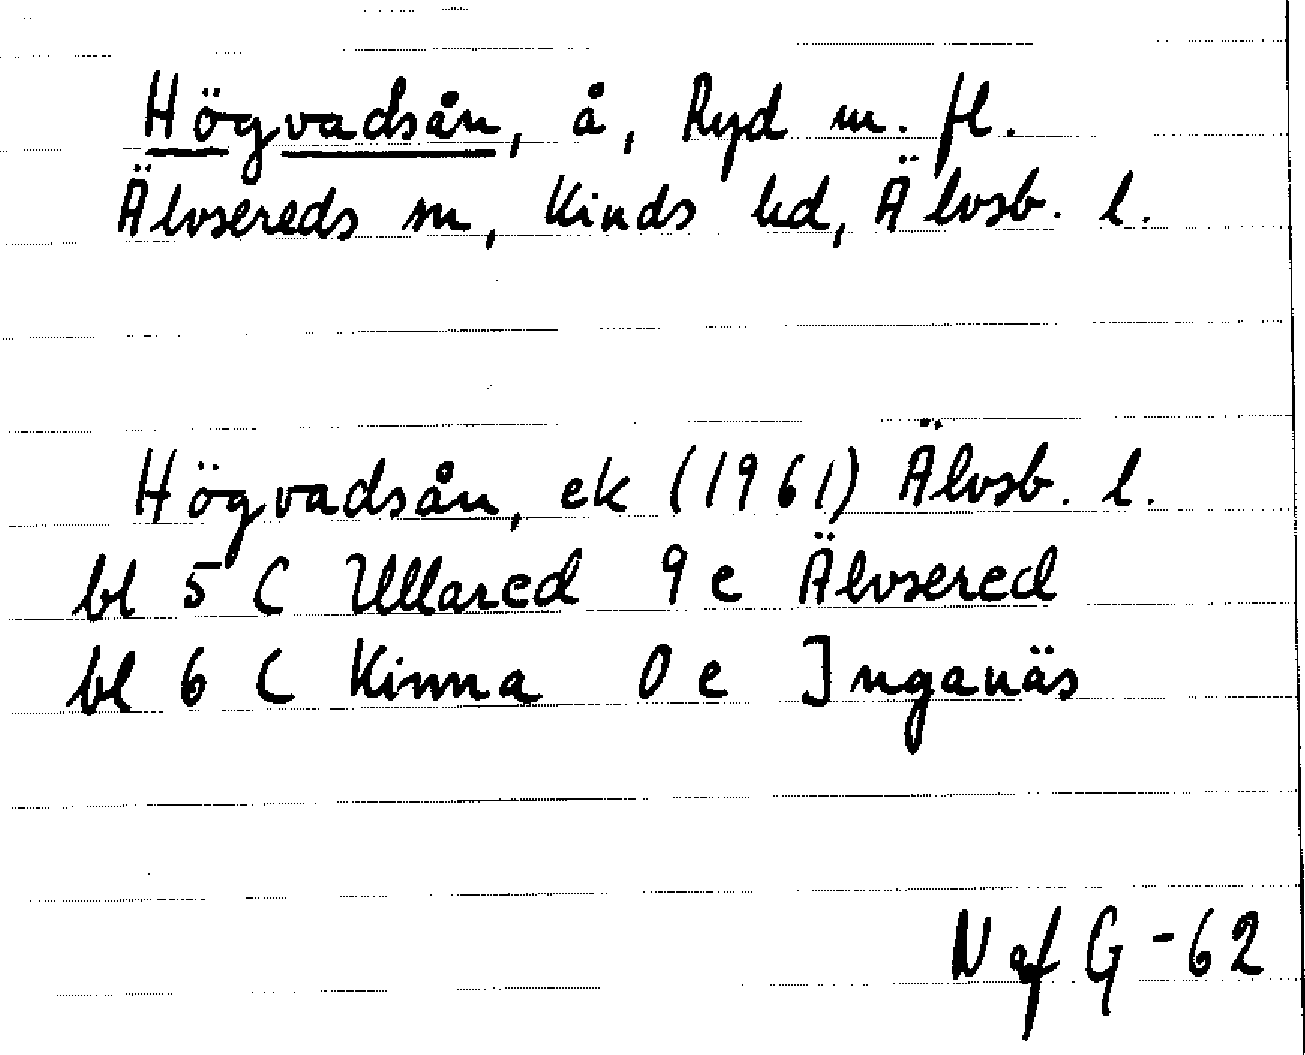 Högvadsån, å, Ryd m. fl.
Älvsereds sn, Kinds hd, Älvsb. l.
Högvadsån, ek (1961) Älvsb. l.
bl 5 C Ullared 9 e Älvsered
bl 6 C Kinna 0 e Inganäs
N af G -62